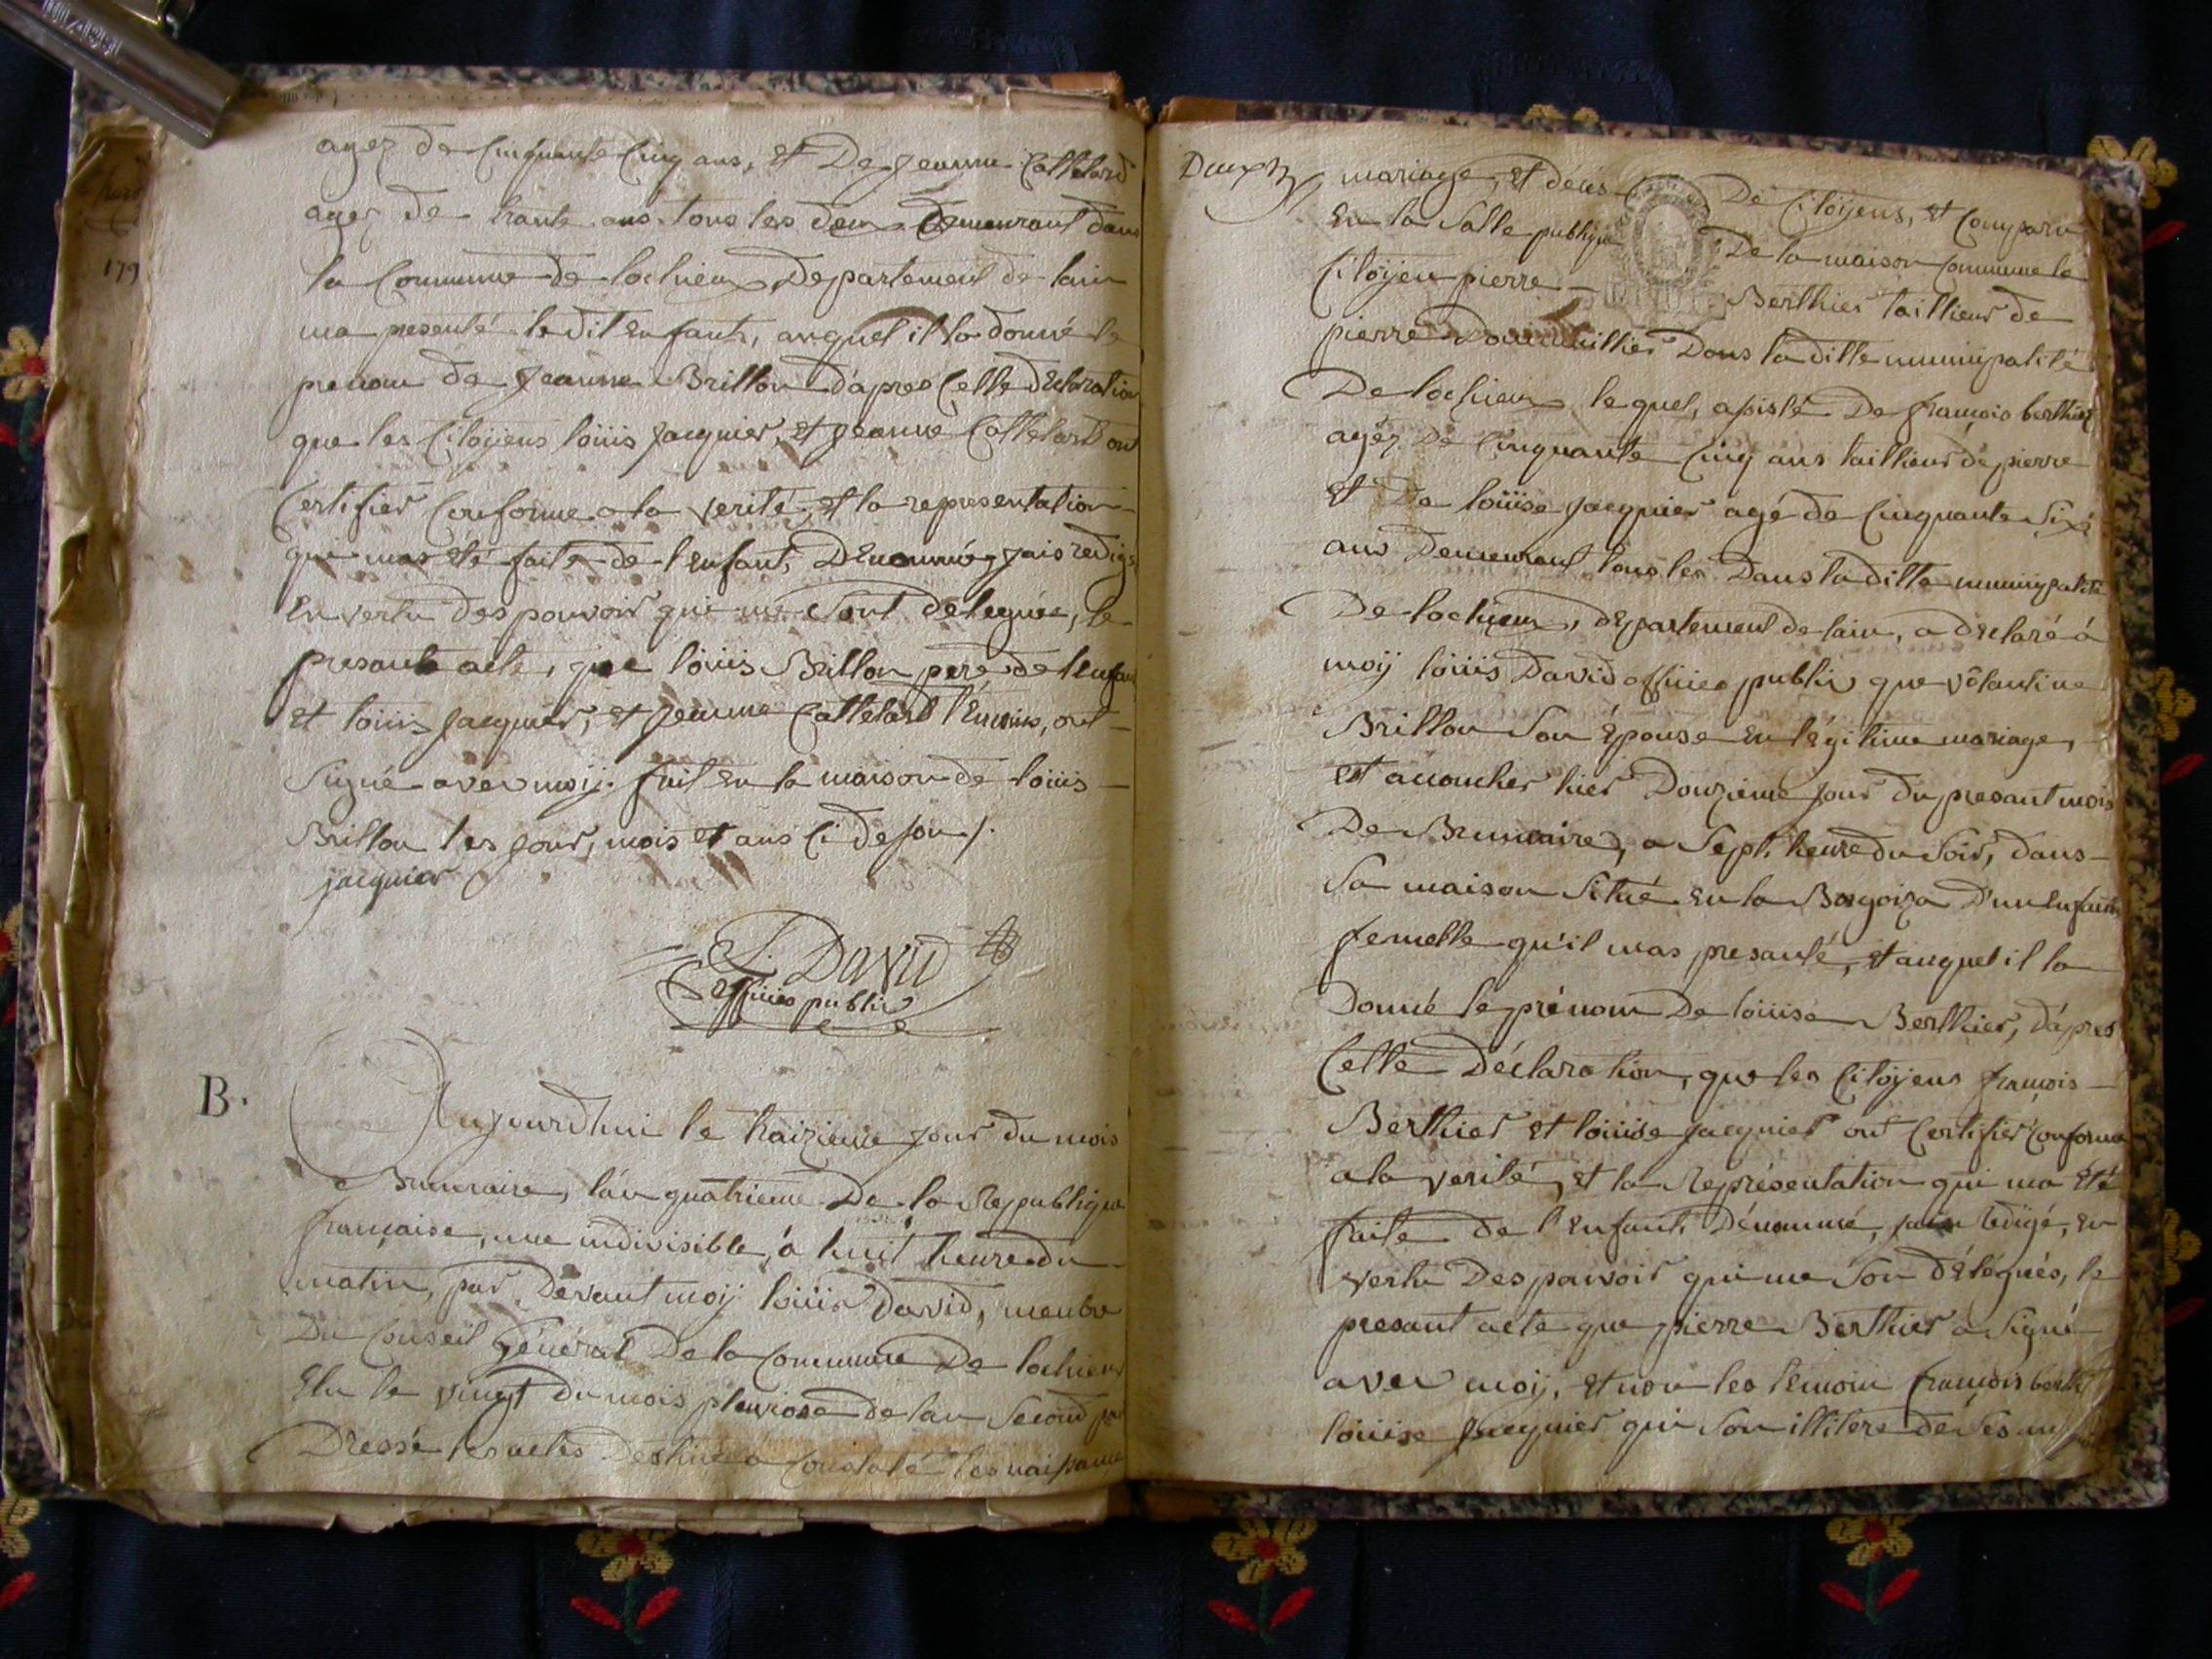 agez de Cinquante Cinq ans, et De jeanne Cattelard
agez de trante ans tous les deux Demeurant dans
la Commune de lochieux, Departement de lain
ma presenté le dit Enfants, auquel il la donné le
prenom de jeanne Brillon d'apres Cette déclaration
que les Citoÿens loüis jacquier, et jeanne Cattelard ont
Certifier Conforme a la verité, et la representation
qui mas eté faite de l'Enfant, Dénommé, jais redigé
En vertu des pouvoir qui me Sont délégués, le
presante acte, que loüis Brillon pere de lenfant
et loüis jacquier, et jeanne Cattelard témoins, ont
Signé avec moij. fait En la maison de loüis
Brillon les jour, mois et ans Ci desu /.
jacquier
L. DAVID
officier public
B.
Aujourdhui le traizieme jour du mois
Brumaire, l'an quatrieme De la Republique
française, une indivisible, à huit heure du
matin, par Devant moij loüis David, menbre
Du Conseil Général De la Commune De lochieux
Elu le vingt du mois pluviose de lan Second pour
Dressé les actes Destinés a Constaté les naissance
179
Deux mariage, et décés De Citoÿens, et Comparu
En la Salle publique De la maison Commune le
Citoÿen pierre Berthier taillieur de
pierre Domicillier Dans la ditte municipalité
De lochieux lequel, assisté De françois berthier
agéz De Cinquante Cinq ans taillieur de pierre
et De loüise jacquier agé de Cinquante Six
ans Demeurant tous les Dans la ditte municipalité
De lochieux, département de lain, a déclaré á
moij loüis David officier public que valantine
Brillon Son Épouse En légitime mariage,
est acoucher hier Douzieme jour du presant mois
De Brumaire, a Sept heure du Soir, dans
Sa maison Situé En la D'un Enfant
femelle qu'il mas presanté, et auquel il la
Donné le prénom De loüise Berthier, d'ápres
Cette Déclaration, que les Citoÿens françois
Berthier et loüise jacquier ont Certifier Conforme
a la verité, et la Représentation qui ma Eté
faite de l'Enfant Dénommé, jais redigé, En
vertu Des pouvoir qui me Son délégués, le
presant acte que pierre Berthier a Signé
avec moij, et non les temoin françois berth
loüise jacquier qui Son illitere de Ses